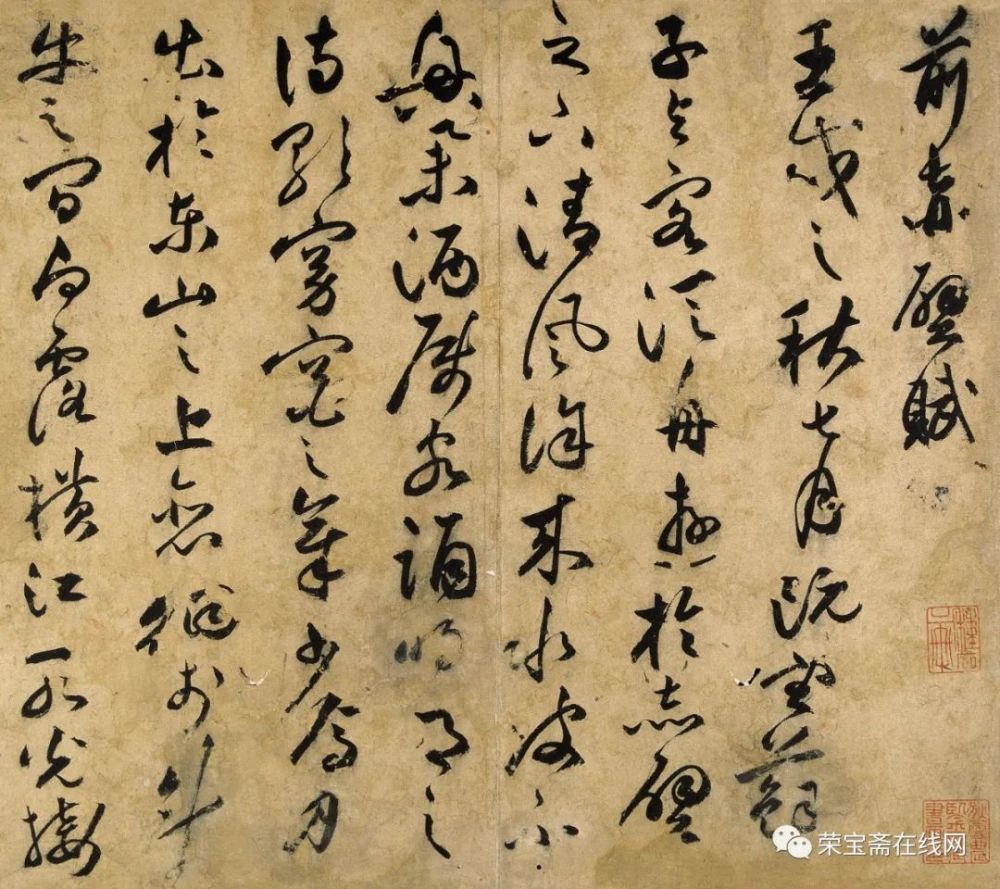 前赤壁賦
壬戌之秋七月既望蘇
子与客泛舟遊於赤壁
之下清風徐來水波不
興舉酒属客誦明月之
詩歌窈窕之章少焉月
出於東山之上徘徊於斗
牛之間白露橫江水光接
荣宝斋在线网